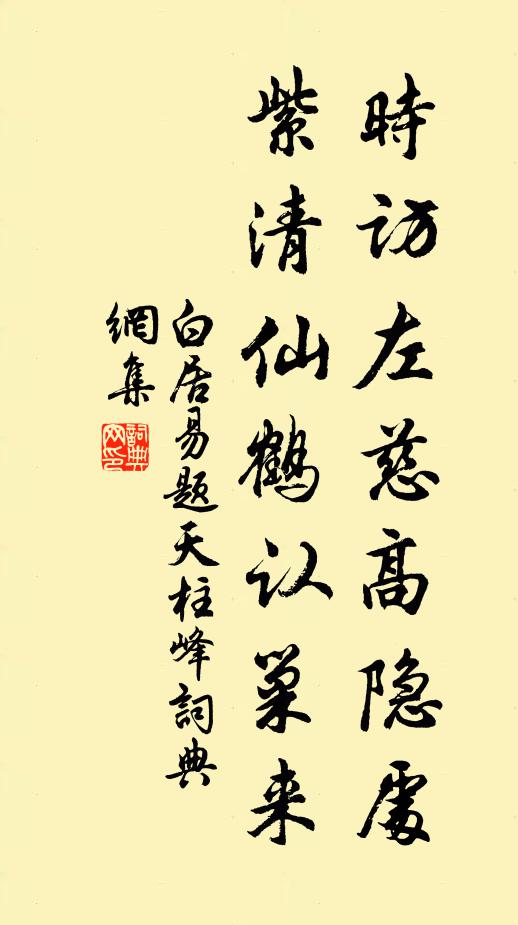 時访左慈高隐處
紫清仙鶴认巢来
白居易题天柱峰詞典
網集
詞典网印